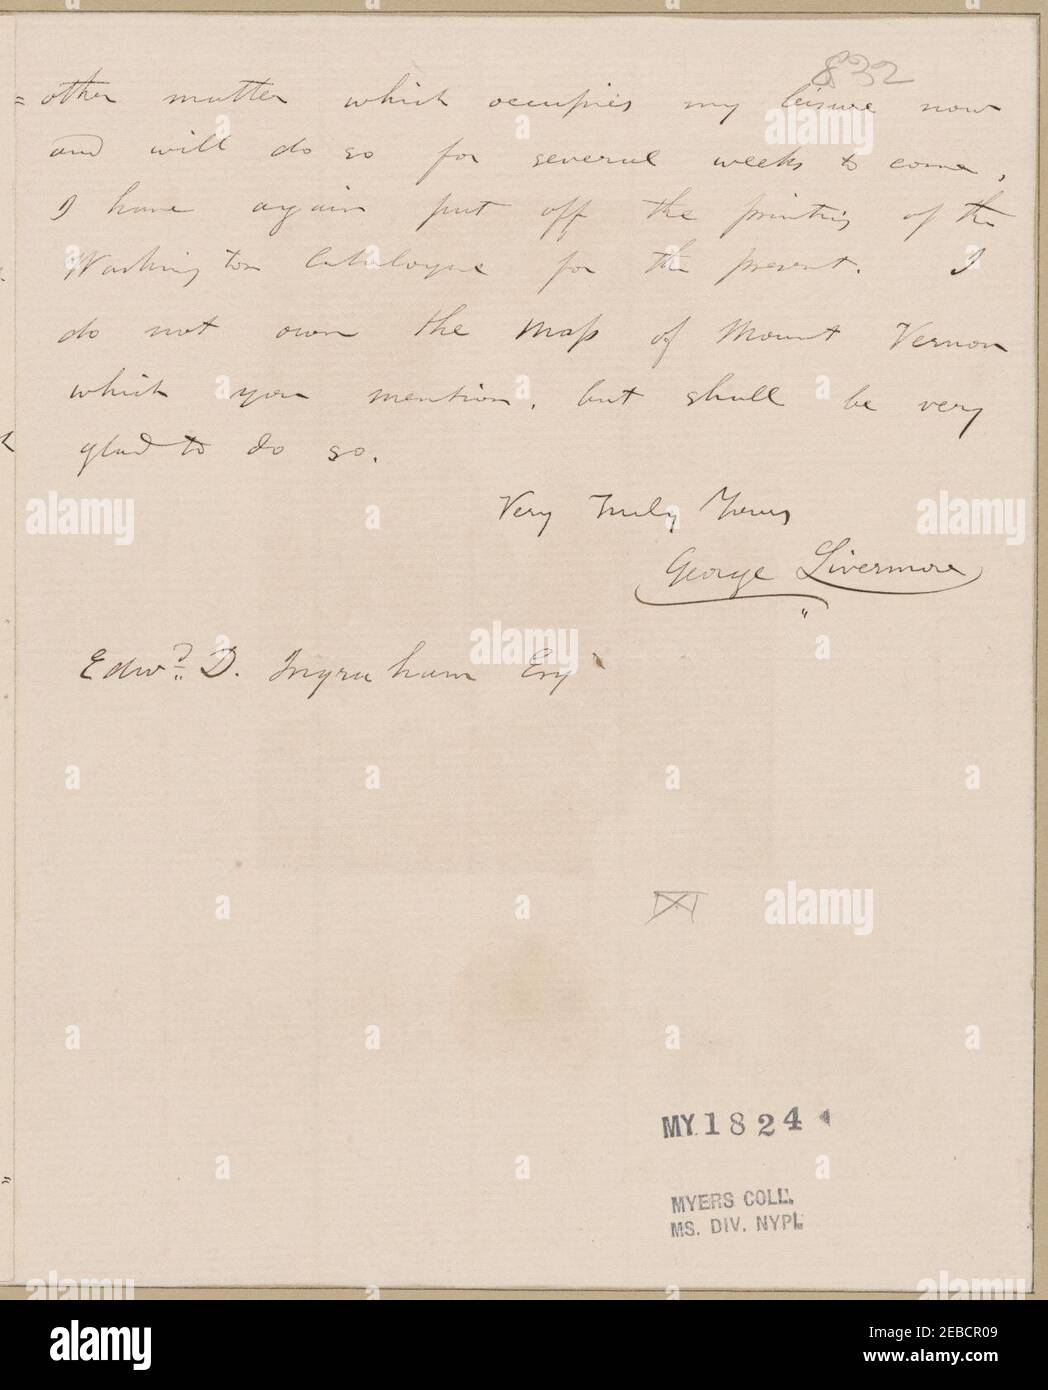 832
= other matter which occupies my leisure now
and will do so for several weeks to come,
I have again put off the printing of the
Washington Catalogue for the present. I
do not own the map of Mount Vernon
which you mention, but shall be very
glad to do so.
Very Truly Yours
George Livermore
Edwd D. Ingraham Esq
MY 1824
MYERS COLL.
MS. DIV. NYPL
alamy
a
alamy
Image ID: 2EBCR09
www.alamy.com